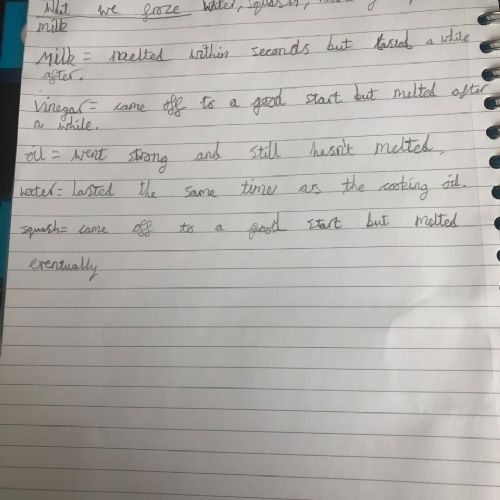 What we froze water, squash,
milk
Milk = melted within seconds but lasted a while
after.
Vinegar = came off to a good start but melted after
a while.
oil = went strong and still hasn't melted.
water = lasted the same time as the cooking oil.
squash = came off to a good start but melted
eventually